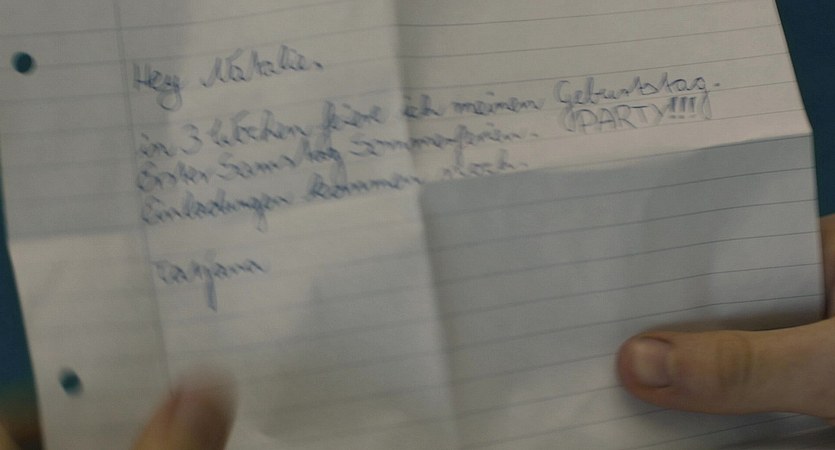 Hey Natalie.
in 3 Wochen feiere ich meinen Geburtstag.
(PARTY!!!)
Erster Samstag Sommerferien.
Einladungen kommen noch.
Tatjana